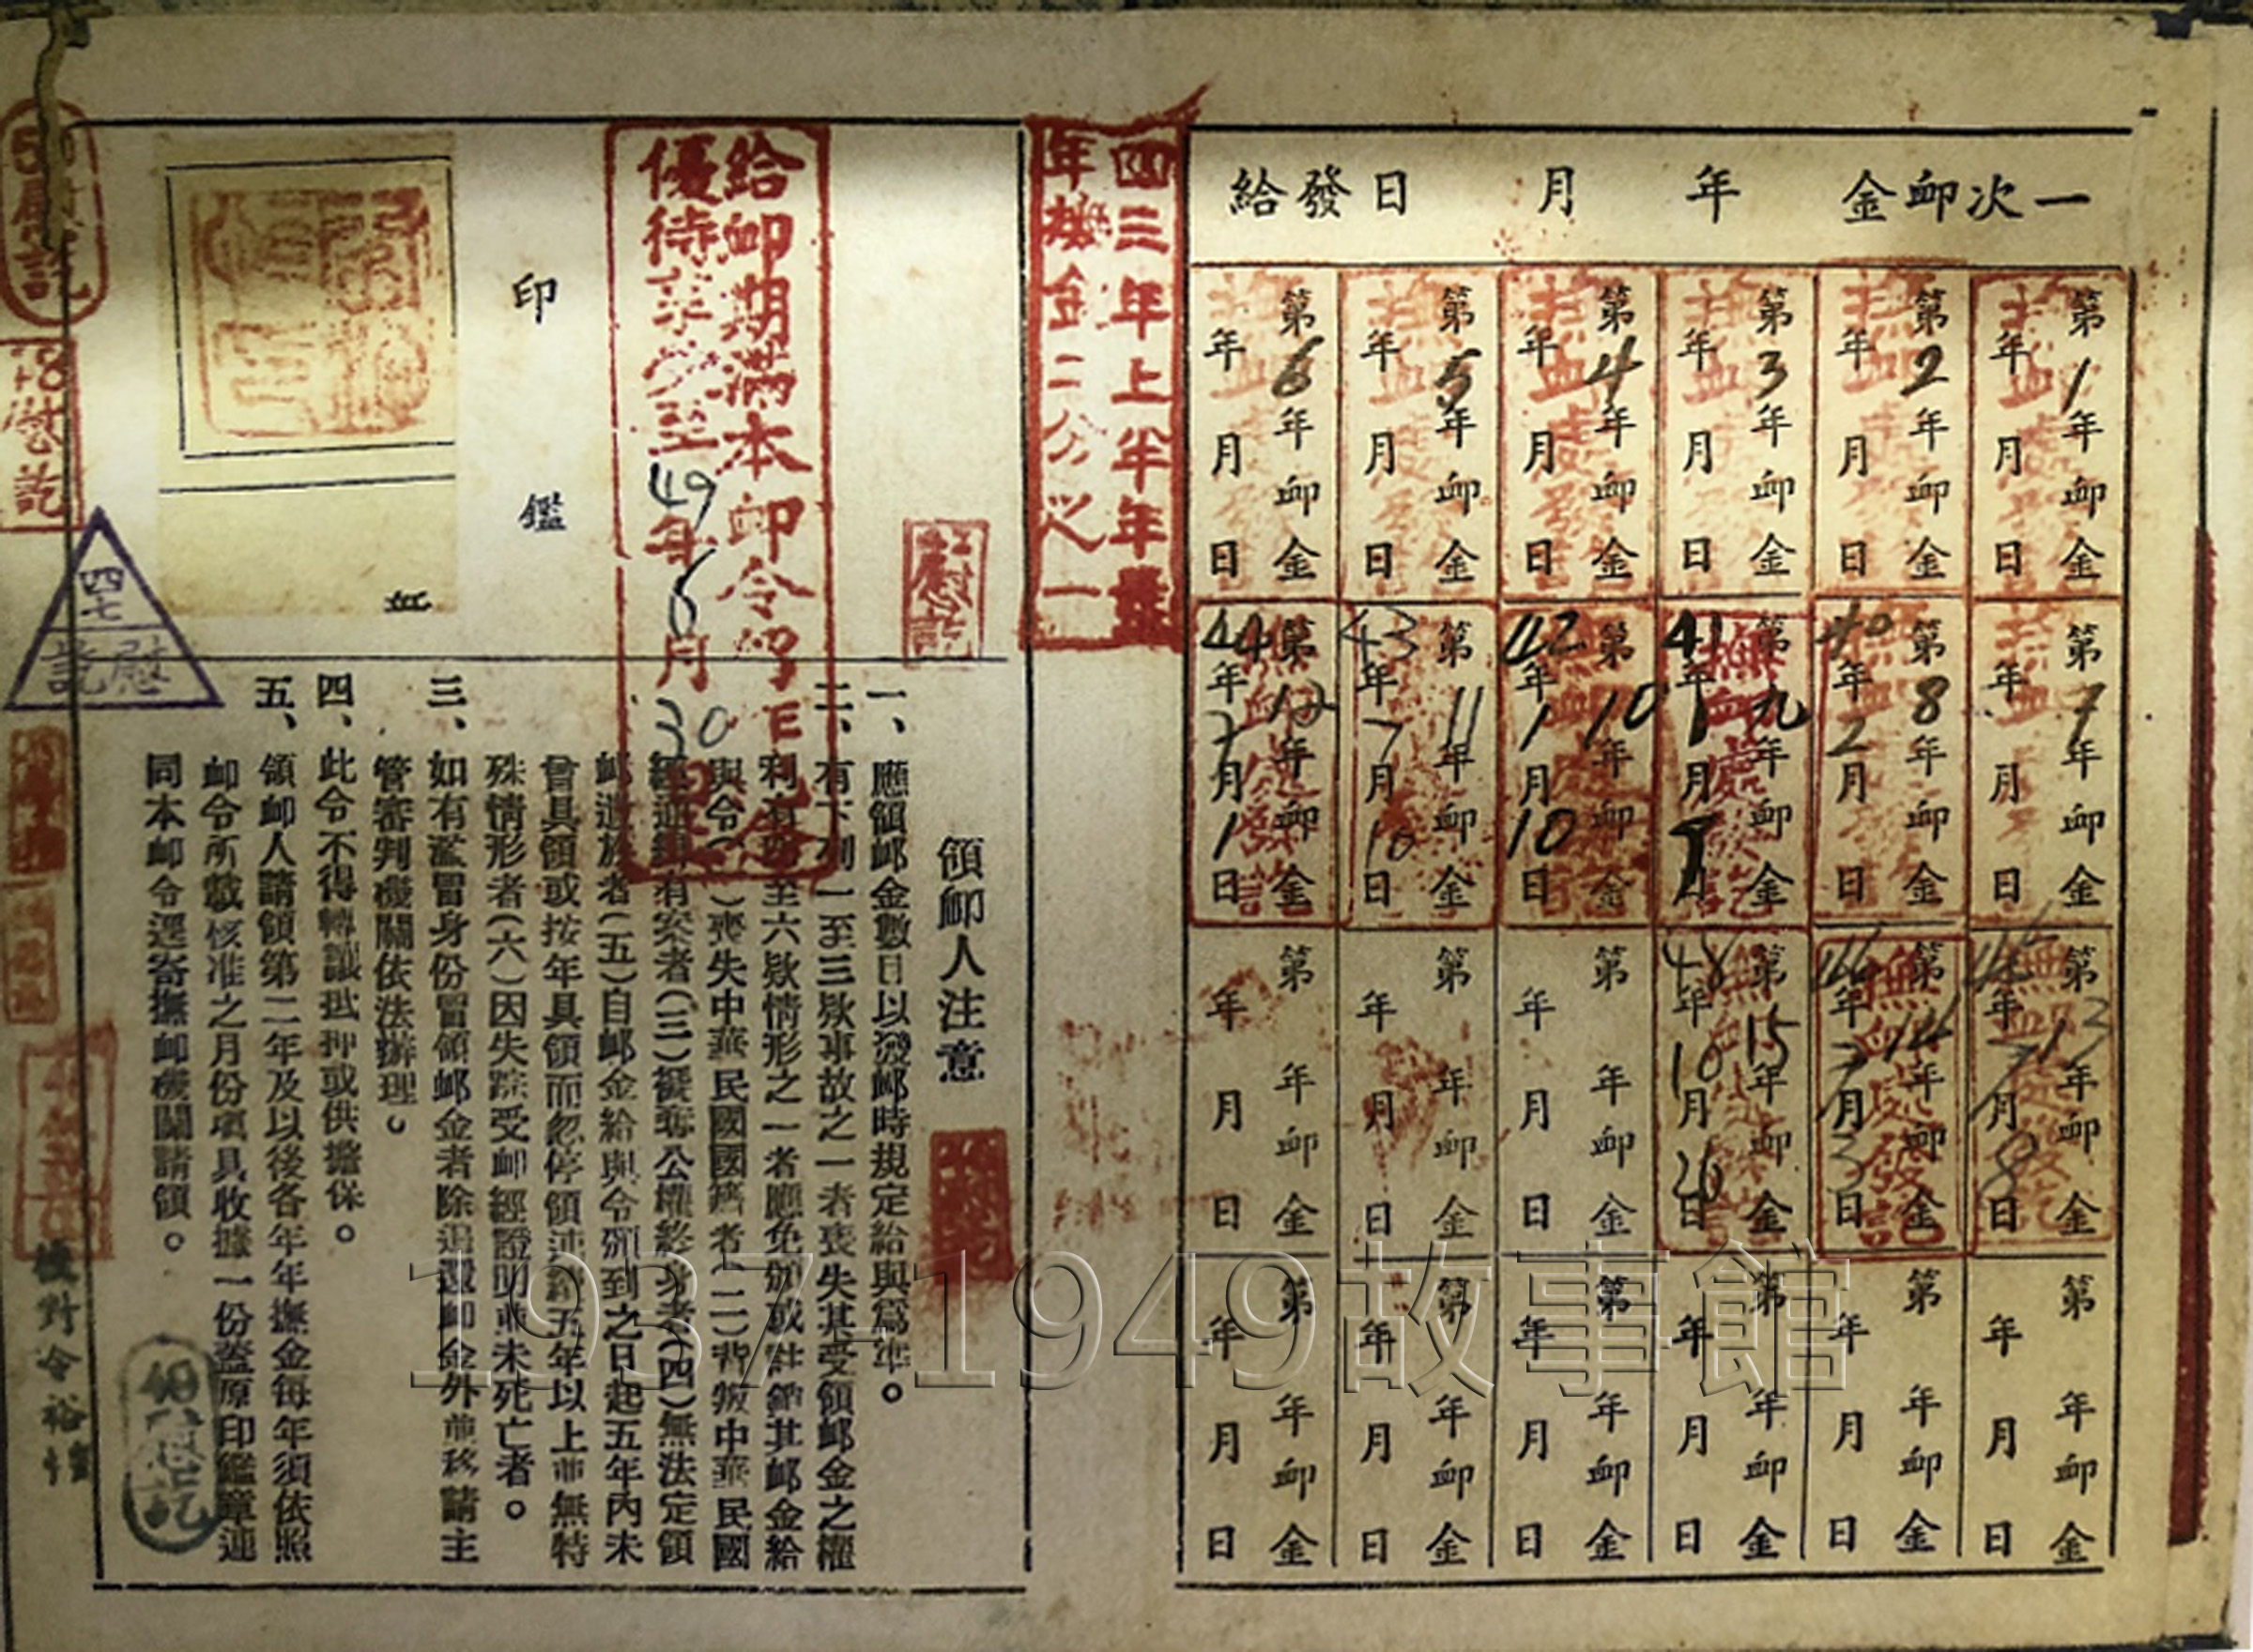 一次卹金 年 月 日發給
第1年卹金
年 月 日
第2年卹金
年 月 日
第3年卹金
年 月 日
第4年卹金
年 月 日
第5年卹金
年 月 日
第6年卹金
年 月 日
第7年卹金
年 月 日
第8年卹金
40年2月 日
第九年卹金
41年1月 日
第10年卹金
42年1月10日
第11年卹金
43年7月10日
第12年卹金
44年7月1日
第13年卹金
年7月8日
第14年卹金
年7月3日
第15年卹金
48年10月26日
第 年卹金
年 月 日
第 年卹金
年 月 日
第 年卹金
年 月 日
第 年卹金
年 月 日
第 年卹金
年 月 日
第 年卹金
年 月 日
第 年卹金
年 月 日
第 年卹金
年 月 日
第 年卹金
年 月 日
撫卹處發訖
四三年上半年
年撫金二分之一
給卹期滿本卹令
優待 至49年6月30日
印鑑
領卹人注意
一、應領卹金數目以發卹時規定給與為準。
二、有下列一至三欵事故之一者喪失其受領卹金之權
利有四至六欵情形之一者應免頒或註銷其卹金給
與令(一)喪失中華民國國籍者(二)背叛中華民國
經通緝有案者(三)褫奪公權終身者(四)無法定領
卹遺族者(五)自卹金給與令頒到之日起五年內未
曾具領或按年具領而忽停領連續五年以上並無特
殊情形者(六)因失踪受卹經證明並未死亡者。
三、如有濫冒身份冒領卹金者除追還卹金外並移請主
管審判機關依法辦理。
四、此令不得轉讓抵押或供擔保。
五、領卹人請領第二年及以後各年年撫金每年須依照
卹令所載核准之月份填具收據一份蓋原印鑑章連
同本卹令逕寄撫卹機關請領。
四七
慰訖
1937-1949故事館